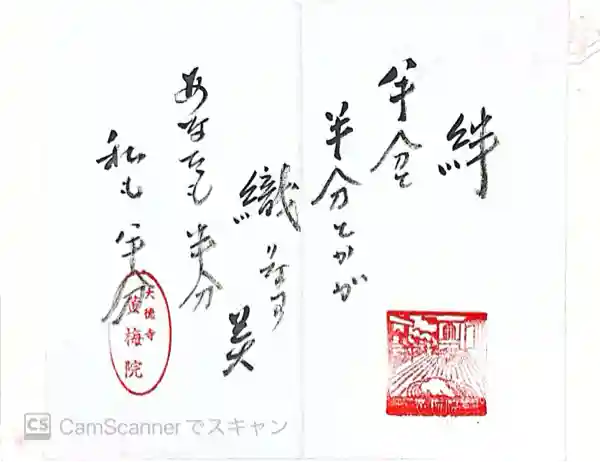 絆
半分と
半分とが
織りなす
美
あなたも半分
私も半分
大徳寺
黄梅院
CS CamScannerでスキャン